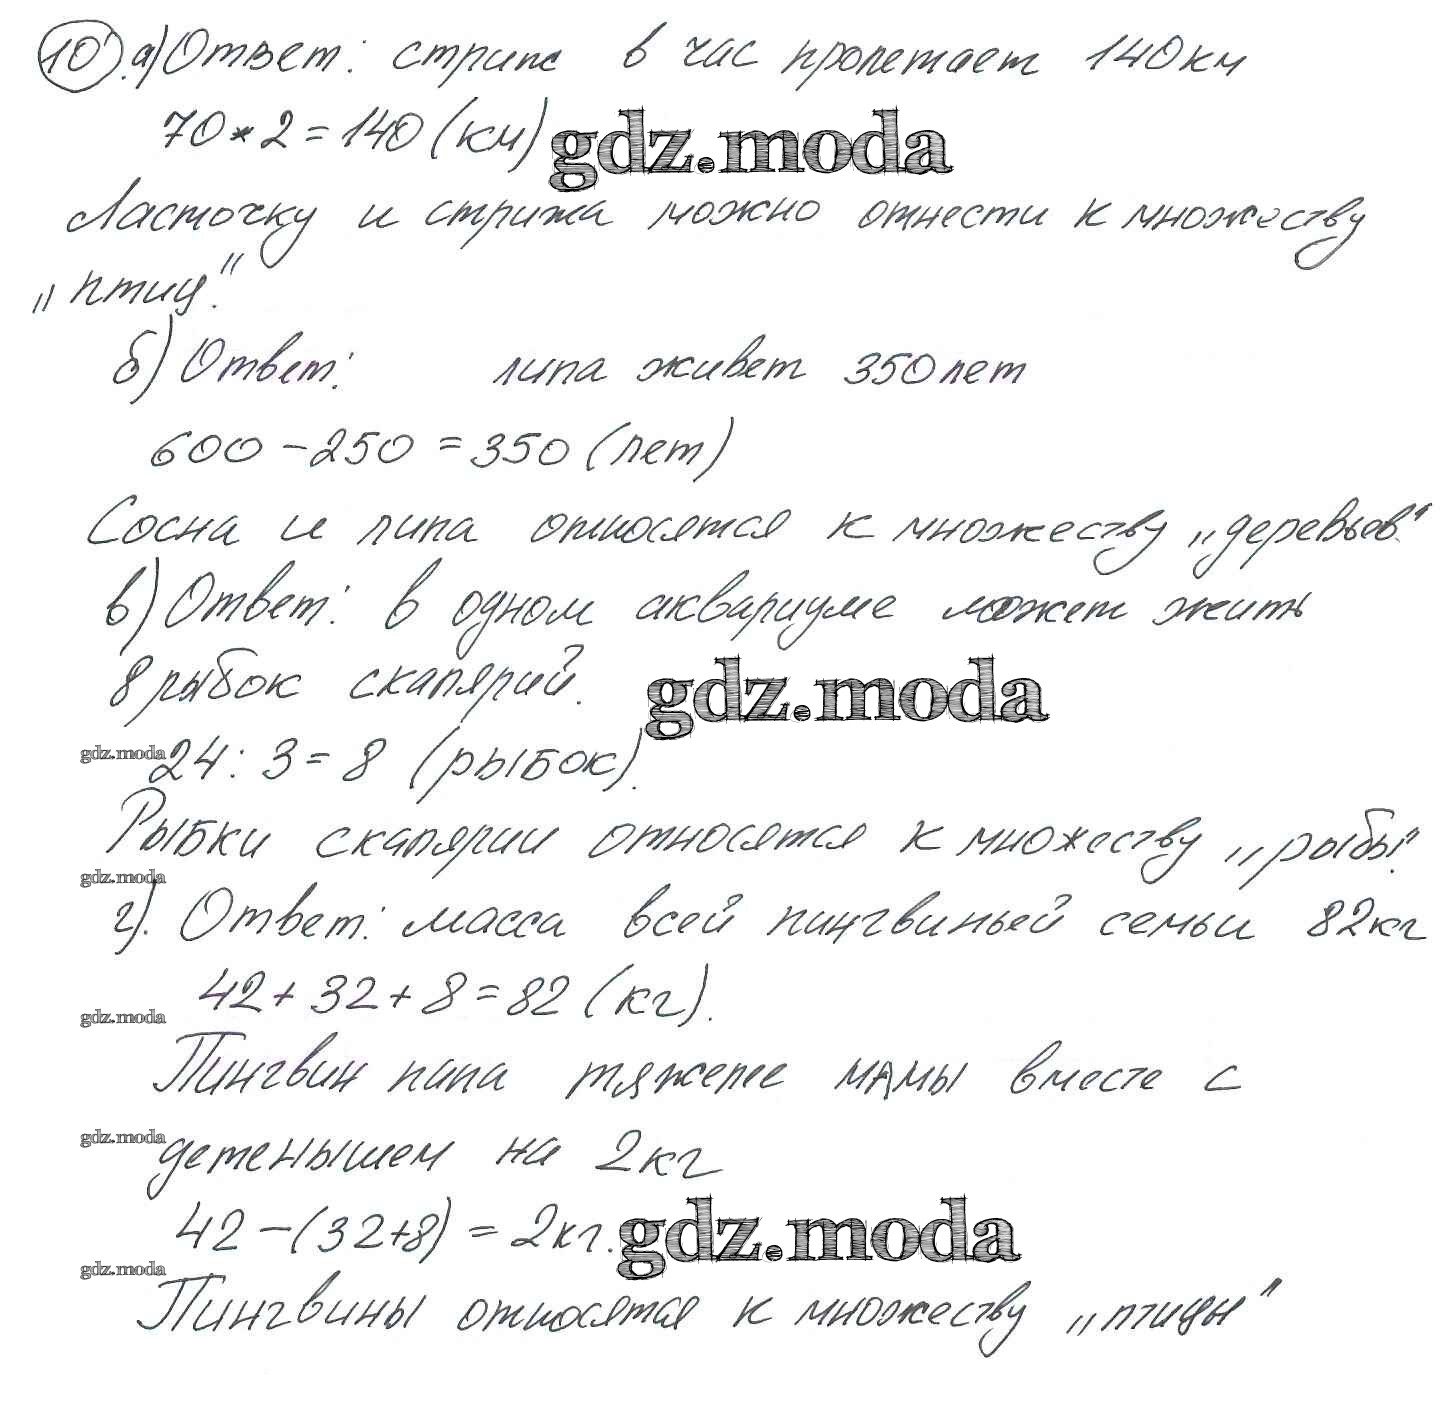 10. а) Ответ: стриж в час пролетает 140 км
70 * 2 = 140 (км)
gdz.moda
Ласточку и стрижа можно отнести к множеству
„птиц".
б) Ответ: липа живет 350 лет
600 - 250 = 350 (лет)
Сосна и липа относятся к множеству „деревьев".
в) Ответ: в одном аквариуме может жить
8 рыбок скалярий.
gdz.moda
gdz.moda
24 : 3 = 8 (рыбок).
Рыбки скалярии относятся к множеству „рыбы".
gdz.moda
г). Ответ: масса всей пингвиньей семьи 82 кг
42 + 32 + 8 = 82 (кг).
gdz.moda
Пингвин папа тяжелее мамы вместе с
gdz.moda
детенышем на 2 кг
42 - (32+8) = 2 кг.
gdz.moda
gdz.moda
Пингвины относятся к множеству „птицы"